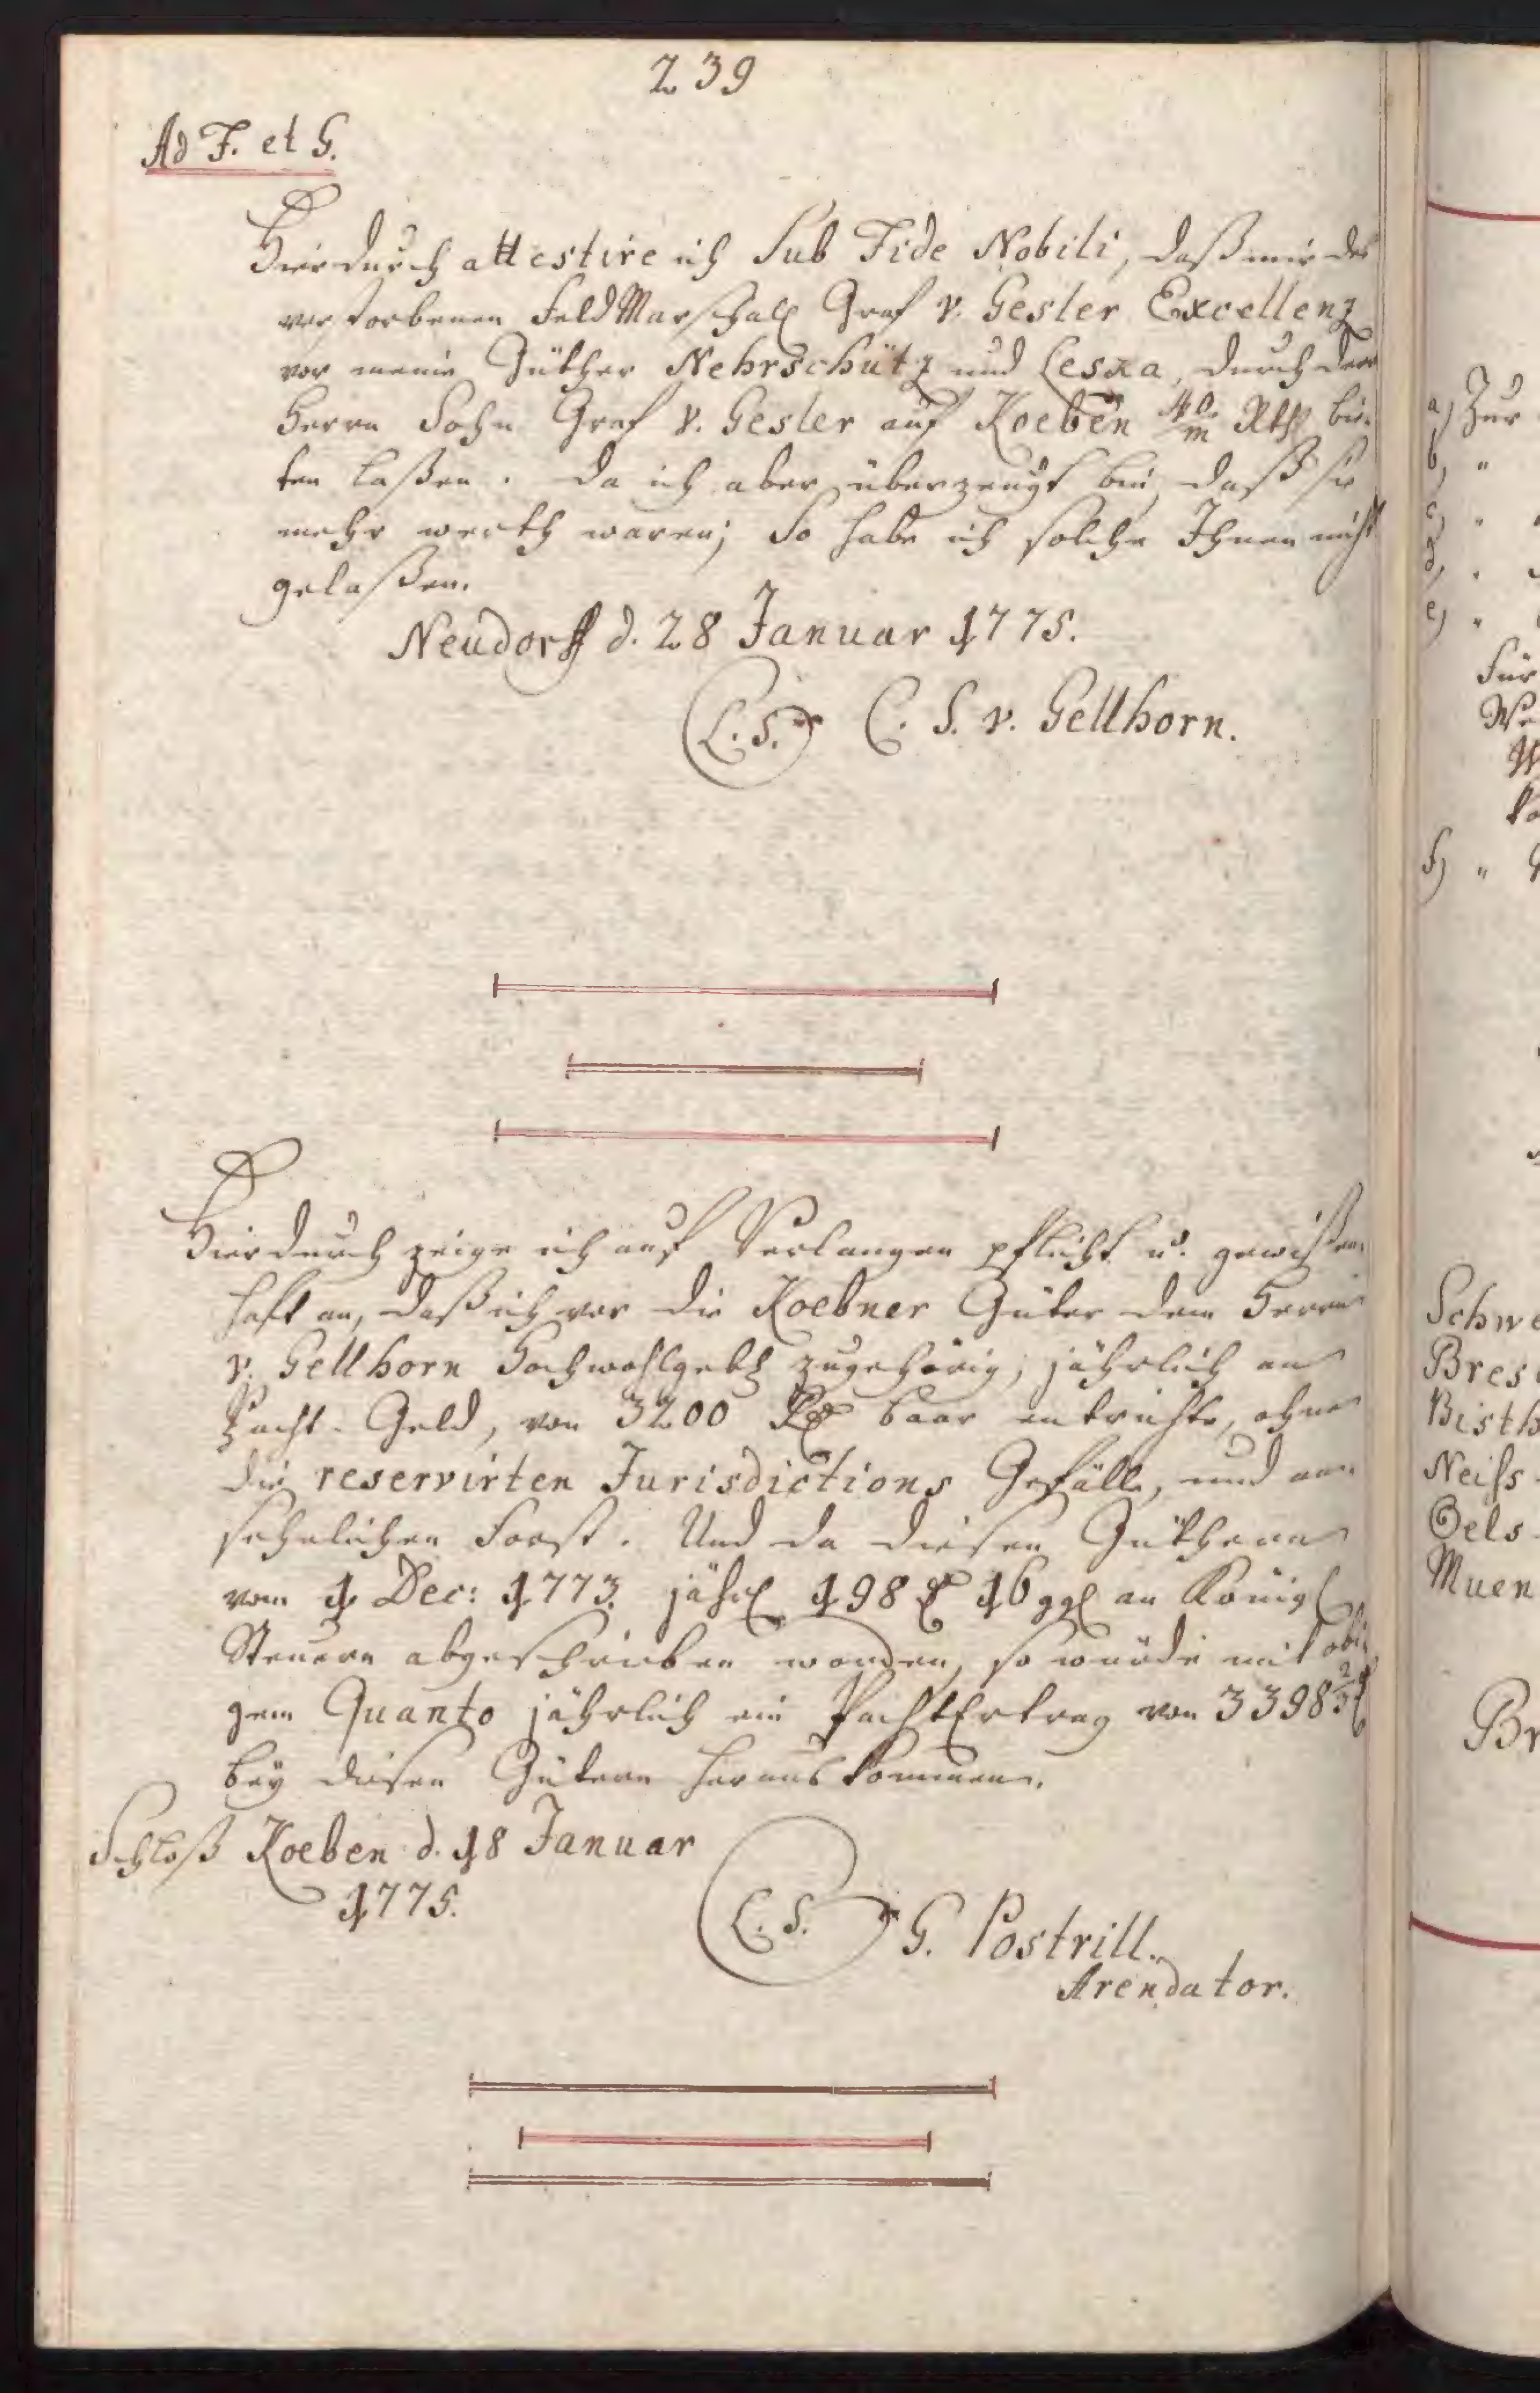 239
Ad F. et G.
Hierdurch attestire ich Sub Fide Nobili, daß mir des
verstorbenen FeldMarschall Graf v. Gesler Excellenz
vor meine Güther Nehrschütz und Leska, durch den
Herrn Sohn Graf v. Gesler auf Koeben 40/m Rthl bie-
ten laßen. Da ich aber überzeugt bin, daß sie
mehr werth waren; So habe ich solche Ihnen nicht
gelaßen.
Neudorff d. 28 Januar 1775.
L. S. C. S. v. Gellhorn.
Hierdurch zeige ich auf Verlangen pflicht u. gewißen-
haft an, daß ich vor die Koebner Güter dem Herrn
v. Gellhorn Hochwohlgeb zugehörig, jährlich an
Pacht-Geld, von 3200 baar entrichte, ohne
die reservirten Jurisdictions Gefälle, und an-
sehnlichen Forst. Und da diesen Güthern
vom 1 Dec: 1773. jährl 198 16 ggl an Königl
Steuern abgeschrieben worden, so würde mit obi-
gem Quanto jährlich ein PachtErtrag von 3398 2/3
bey diesen Gütern heraus kommen.
Schloß Koeben d. 18 Januar
1775.
L. S. G. Postrill.
Arendator.
a) Zur
b) "
c) "
d) "
e) "
Für
We
f) "
Schwe
Bres
Bisth
Neiss
Oels
Muen
Br